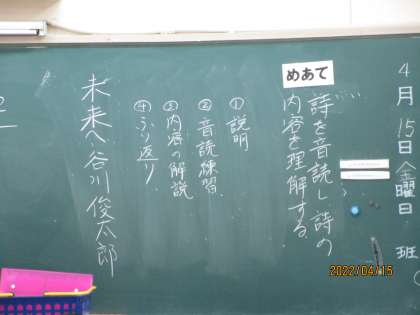 4月15日(金)曜日 班
めあて
詩を音読し、詩の
内容を理解する。
①説明
②音読練習
③内容の解説
④ふり返り
未来へ 谷川俊太郎
2022/04/15